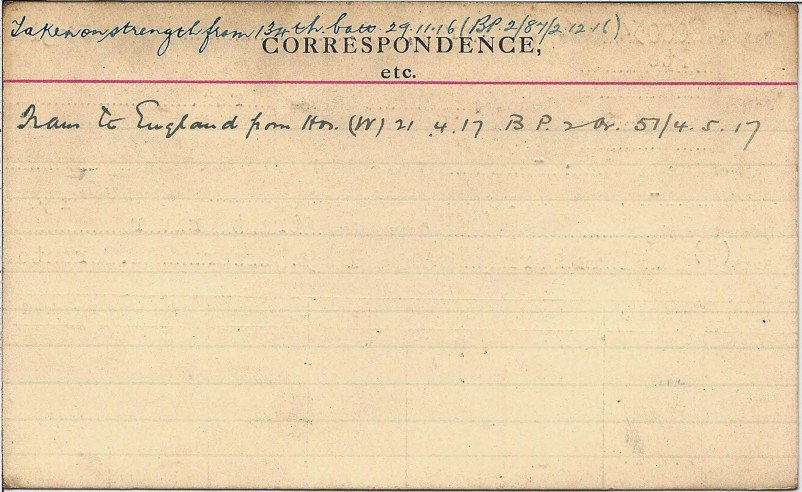 Taken on strength from 134th. batt. 29.11.16 (B.P. 2/87/2.12.16)
CORRESPONDENCE,
etc.
Trans to England from Hos. (W) 21.4.17 B.P. 2 Or. 51/4.5.17